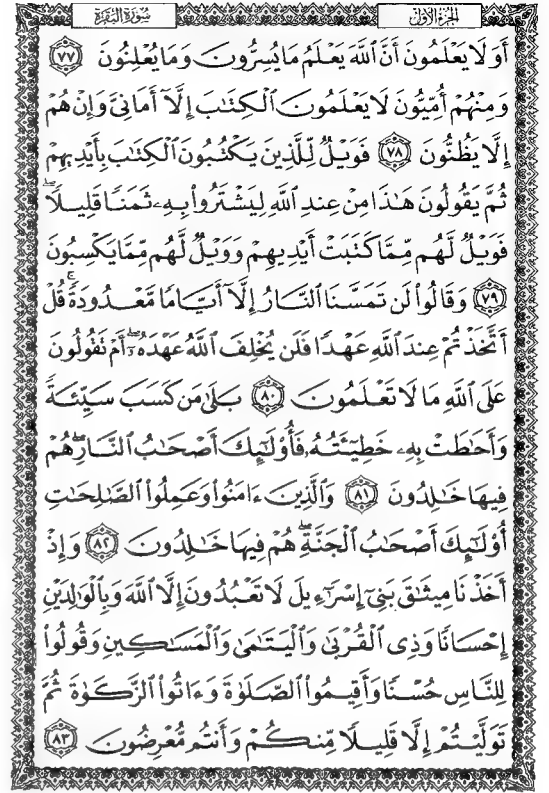 الجزء الأول
سورة البقرة
أَوَلَا يَعْلَمُونَ أَنَّ اللَّهَ يَعْلَمُ مَا يُسِرُّونَ وَمَا يُعْلِنُونَ ۝٧٧
وَمِنْهُمْ أُمِّيُّونَ لَا يَعْلَمُونَ الْكِتَابَ إِلَّا أَمَانِيَّ وَإِنْ هُمْ
إِلَّا يَظُنُّونَ ۝٧٨ فَوَيْلٌ لِّلَّذِينَ يَكْتُبُونَ الْكِتَابَ بِأَيْدِيهِمْ
ثُمَّ يَقُولُونَ هَٰذَا مِنْ عِندِ اللَّهِ لِيَشْتَرُوا بِهِ ثَمَنًا قَلِيلًا ۖ
فَوَيْلٌ لَّهُم مِّمَّا كَتَبَتْ أَيْدِيهِمْ وَوَيْلٌ لَّهُم مِّمَّا يَكْسِبُونَ
۝٧٩ وَقَالُوا لَن تَمَسَّنَا النَّارُ إِلَّا أَيَّامًا مَّعْدُودَةً ۚ قُلْ
أَتَّخَذْتُمْ عِندَ اللَّهِ عَهْدًا فَلَن يُخْلِفَ اللَّهُ عَهْدَهُ ۖ أَمْ تَقُولُونَ
عَلَى اللَّهِ مَا لَا تَعْلَمُونَ ۝٨٠ بَلَىٰ مَن كَسَبَ سَيِّئَةً
وَأَحَاطَتْ بِهِ خَطِيئَتُهُ فَأُولَٰئِكَ أَصْحَابُ النَّارِ ۖ هُمْ
فِيهَا خَالِدُونَ ۝٨١ وَالَّذِينَ ءَامَنُوا وَعَمِلُوا الصَّالِحَاتِ
أُولَٰئِكَ أَصْحَابُ الْجَنَّةِ ۖ هُمْ فِيهَا خَالِدُونَ ۝٨٢ وَإِذْ
أَخَذْنَا مِيثَاقَ بَنِي إِسْرَاءِيلَ لَا تَعْبُدُونَ إِلَّا اللَّهَ وَبِالْوَالِدَيْنِ
إِحْسَانًا وَذِي الْقُرْبَىٰ وَالْيَتَامَىٰ وَالْمَسَاكِينِ وَقُولُوا
لِلنَّاسِ حُسْنًا وَأَقِيمُوا الصَّلَوٰةَ وَءَاتُوا الزَّكَوٰةَ ثُمَّ
تَوَلَّيْتُمْ إِلَّا قَلِيلًا مِّنكُمْ وَأَنتُم مُّعْرِضُونَ ۝٨٣